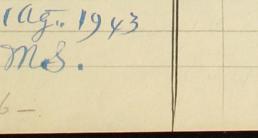 1 Ag.. 1943
M.S.
6 —